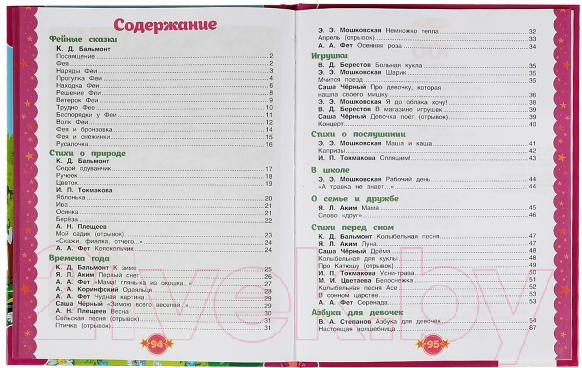 Содержание
Фейные сказки
К. Д. Бальмонт
Посвящение 2
Фея 2
Наряды Феи 2
Прогулка Феи 4
Находка Феи 6
Решение Феи 8
Ветерок Феи 10
Трудно Фее 10
Беспорядки у Феи 11
Волк Феи 12
Фея и бронзовка 14
Фея и снежинки 15
Русалочка 16
Стихи о природе
К. Д. Бальмонт
Седой одуванчик 17
Ручеек 18
Цветок 19
И. П. Токмакова
Яблонька 20
Ива 21
Осинка 21
Берёза 22
А. Н. Плещеев
Мой садик (отрывок) 23
«Скажи, фиалка, отчего...» 24
А. А. Фет Колокольчик 24
Времена года
К. Д. Бальмонт К зиме 25
Я. Л. Аким Первый снег 26
А. А. Фет «Мама! глянь-ка из окошка...» 27
А. А. Коринфский Одеяльце 28
А. А. Фет Чудная картина 29
Саша Чёрный «Зимою всего веселей...» 29
А. Н. Плещеев Весна 30
Сельская песня (отрывок) 31
Птичка (отрывок) 31
94
Э. Э. Мошковская Немножко тепла 32
Апрель (отрывок) 33
А. А. Фет Осенняя роза 34
Игрушки
В. Д. Берестов Больная кукла 35
Э. Э. Мошковская Шарик 35
Мчится поезд 35
Саша Чёрный Про девочку, которая
нашла своего мишку 36
Э. Э. Мошковская Я до облака хочу! 38
В. Д. Берестов В магазине игрушек 39
Саша Чёрный Девочка поёт (отрывок) 39
Концерт 41
Стихи о послушании
Э. Э. Мошковская Маша и каша 41
Капризы 42
И. П. Токмакова Спляшем! 43
В школе
Э. Э. Мошковская Рабочий день 44
«А травка не знает...» 44
О семье и дружбе
Я. Л. Аким Мама 45
Слово «друг» 46
Стихи перед сном
К. Д. Бальмонт Колыбельная песня 47
Я. Л. Аким Луна 47
Саша Чёрный Дрёма 48
Колыбельная для куклы 48
Про Катюшу (отрывок) 49
И. П. Токмакова Усни-трава 50
М. И. Цветаева Белоснежка 51
Колыбельная песня Асе 52
В сонном царстве 53
А. А. Фет Серенада 53
Азбука для девочек
В. А. Степанов Азбука для девочек 54
Настоящая волшебница 87
95